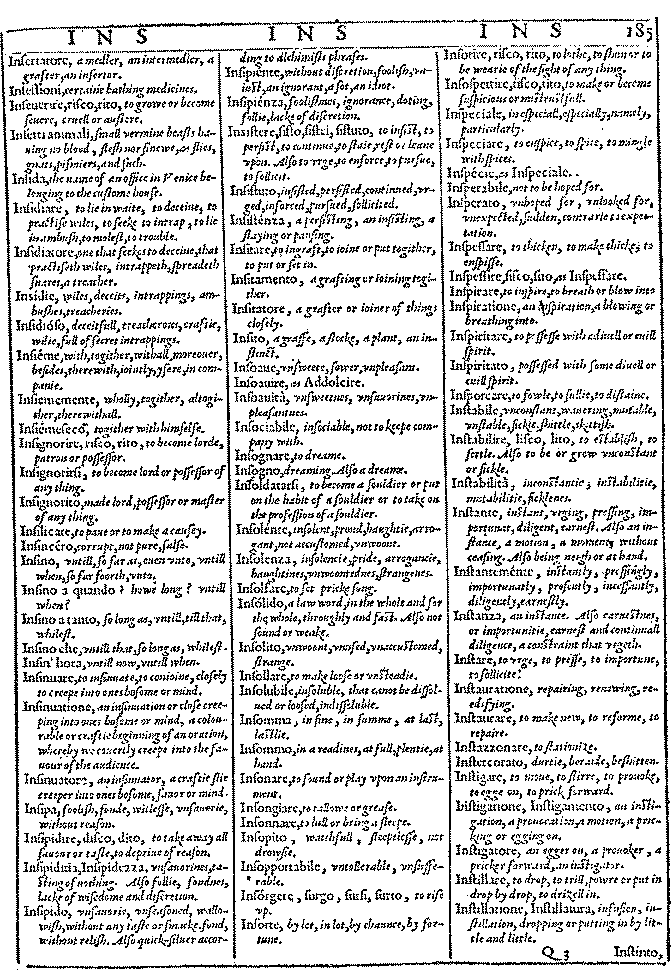 INS INS INS 185
Insertatore, a medler, an intermedler, a
grafter, an insertor.
Insessioni, certaine bathing medicines.
Inseuerire, risco, rito, to growe or become
seuere, cruell or austere.
Insetti animali, small vermine beasts ha-
uing no blood, flesh nor sinewe, as flies,
gnats, pismiers, and such.
Insida, the name of an office in Venice be-
longing to the custome house.
Insidiare, to lie in waite, to deceiue, to
practise wiles, to seeke to intrap, to lie
in ambush, to molest, to trouble.
Insidiatore, one that seekes to deceiue, that
practiseth wiles, intrappeth, spreadeth
snares, a treacher.
Insidie, wiles, deceits, intrappings, am-
bushes, treacheries.
Insidióso, deceitfull, treacherous, craftie,
wilie, full of secret intrappings.
Insiéme, with, together, withall, moreouer,
besides, therewith, iointly, yfere, in com-
panie.
Insiememente, wholly, together, altogi-
ther, therewithall.
Insiémeseco, together with himselfe.
Insignorire, risco, rito, to become lorde,
patron or possessor.
Insignorirsi, to become lord or possessor of
any thing.
Insignorito, made lord, possessor or master
of any thing.
Insilicare, to paue or to make a causey.
Insincéro, corrupt, not pure, false.
Insino, vntill, so far as, euen vnto, vntill
when, so far foorth, vnto.
Insino a quando? howe long? vntill
when?
Insino a tanto, so long as, vntill, till that,
whilest.
Insino che, vntill that, so long as, whilest.
Insin' hora, vntill now, vntill when.
Insinuare, to insinuate, to conioine, closely
to creepe into ones bosome or mind.
Insinuatione, an insinuation or close cree-
ping into ones bosome or mind, a colou-
rable or craftie beginning of an oration,
whereby we couertly creepe into the fa-
uour of the audience.
Insinuatore, an insinuator, a craftie slie
creeper into ones bosome, fauor or mind.
Insipa, foolish, fonde, witlesse, vnsauorie,
without reason.
Insipidire, disco, dito, to take away all
fauour or taste, to depriue of reason.
Insipidità, Insipidezza, vnsauorines, ta-
sting of nothing. Also follie, fondnes,
lacke of wisedome and discretion.
Insipido, vnsauorie, vnseasoned, wallo-
wish, without any taste or smacke, fond,
without relish. Also quick-siluer accor-
ding to alchimists phrases.
Insipiénte, without discretion, foolish, vn-
wist, an ignorant, a sot, an idiot.
Insipiénza, foolishnes, ignorance, doting,
follie, lacke of discretion.
Insistere, sisto, sistei, sistuto, to insist, to
persist, to continue, to staie, rest or leane
vpon. Also to vrge, to enforce, to pursue,
to sollicit.
Insistuto, insisted, persisted, continued, vr-
ged, inforced, pursued, sollicited.
Insisténza, a persisting, an insisting, a
staying or pausing.
Insitare, to ingraft, to ioine or put together,
to put or set in.
Insitamento, a grafting or ioining togi-
ther.
Insitatore, a grafter or ioiner of things
closely.
Insito, a graffe, a stocke, a plant, an in-
stinct.
Insoaue, vnsweete, sower, vnpleasant.
Insoauire, as Addolcire.
Insoauità, vnsweetnes, vnsauorines, vn-
pleasantnes.
Insociabile, insociable, not to keepe com-
pany with.
Insognare, to dreame.
Insogno, dreaming. Also a dreame.
Insoldatarsi, to become a souldier or put
on the habit of a souldier or to take on
the profession of a souldier.
Insolénte, insolent, proud, haughtie, arro-
gant, not accustomed, vnwoont.
Insolenza, insolencie, pride, arrogancie,
haughtines, vnwoontednes, strangenes.
Insolfare, to set pricke song.
Insólido, a law word, in the whole and for
the whole, throughly and fast. Also not
sound or weake.
Insolito, vnwoont, vnused, vnaccustomed,
strange.
Insollare, to make loose or vnsteadie.
Insolubile, insoluble, that cannot be dissol-
ued or loosed, indissoluble.
Insomma, in fine, in summe, at last,
lastlie.
Insommo, in a readines, at full, plentie, at
hand.
Insonare, to sound or play vpon an instru-
ment.
Insongiare, to tallowe or grease.
Insonnare, to lull or bring a sleepe.
Insopito, watchfull, sleepelesse, not
drowsie.
Insopportabile, vntollerable, vnsuffe-
rable.
Insórgere, surgo, sursi, surto, to rise
vp.
Insorte, by lot, in lot, by chaunce, by for-
tune.
Insorire, risco, rito, to lothe, to shun or to
be wearie of the sight of any thing.
Insospettire, risco, rito, to make or become
suspicious or mistrustfull.
Inspeciale, in especiall, especially, namely,
particularly.
Inspeciare, to enspice, to spice, to mingle
with spices.
Inspécie, as Inspeciale.
Insperabile, not to be hoped for.
Insperato, vnhoped for, vnlooked for,
vnexpected, sudden, contrarie to expec-
tation.
Inspessare, to thicken, to make thicke, to
enspisse.
Inspessire, sisco, sito, as Inspessare.
Inspirare, to inspire, to breath or blow into
Inspiratione, an inspiration, a blowing or
breathing into.
Inspiritare, to possesse with a diuell or euill
spirit.
Inspiritato, possessed with some diuell or
euill spirit.
Insporcare, to fowle, to sullie, to distaine.
Instabile, vnconstant, wauering, mutable,
vnstable, fickle, shuttle, skittish.
Instabilire, lisco, lito, to establish, to
settle. Also to be or grow vnconstant
or fickle.
Instabilità, inconstancie, instabilitie,
mutabilitie, ficklenes.
Instante, instant, vrging, pressing, im-
portunat, diligent, earnest. Also an in-
stance, a motion, a moment, without
ceasing. Also being neere or at hand.
Instanteménte, instantly, pressingly,
importunatly, presently, incessantly,
diligently, earnestly.
Instanza, an instance. Also earnestnes,
or importunitie, earnest and continuall
diligence, a constraint that vrgeth.
Instare, to vrge, to presse, to importune,
to sollicite.
Instauratione, repairing, renewing, re-
edifying.
Instaurare, to make new, to reforme, to
repaire.
Instazzonare, to slauinize.
Instercorato, durtie, beraide, beshitten.
Instigare, to moue, to stirre, to prouoke,
to egge on, to prick forward.
Instigatione, Instigamento, an insti-
gation, a prouocation, a motion, a pric-
king or egging on.
Instigatore, an egger on, a prouoker, a
pricker forward, an instigator.
Instillare, to drop, to trill, powre or put in
drop by drop, to drizell in.
Instillatione, Instillatura, infusion, in-
stillation, dropping or putting in by lit-
tle and little.
Q 3 Instinto,